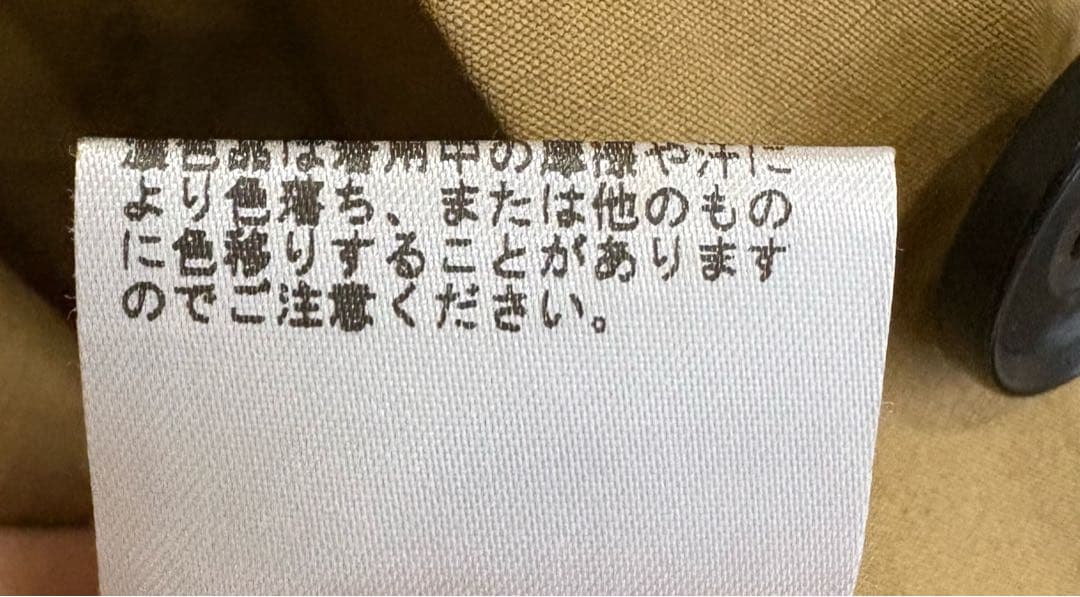 濃色品は着用中の摩擦や汗に
より色落ち、または他のもの
に色移りすることがあります
のでご注意ください。